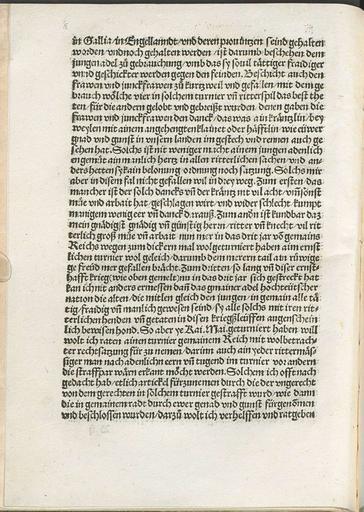 in Gallia/in Engellanndt/vnd deren prouintzen seind gehalten
worden/vnd noch gehalten werden/ist darumb beschehen dem
jungen adel zů gebrauchung/vmb das sy souil tättiger fraidiger
vnnd geschickter werden gegen den feinden. Beschicht auch den
frawen vnd junckfrawen zů kurtzweil vnd gefallen/mit dem ge
brauch wölche vier in solchem turnier vñ ritterspil das best the
ten/für die andern gelobt vnd gebreißt wurden/denen gaben die
frawen vnd junckfrawen den danck/das was ain krantzlin/bey
weylen mit ainem angehengten klainet oder häfftlin/wie ewer
gnad vnd gunst in wesern landen im gesech vnd reinen auch ge
sehen hat. Solchs ist nit weniger mache ainem jungen adenlich
en gemüt ain manlich hertz in allen ritterlichen sachen/vnd an/
ders hetten sy kain belonung/ordnung noch satzung. Solchs mir
aber in disem fal nit gefallen wil in der weg. Zum ersten/das
mancher ist der solch danck vñ der krantz mit vil acht/vñ sonst
müe vnd arbait hat/geschlagen wirt/vnd wider schlecht/kumpt
manigem weniger vñ danck drauß. Zum andñ ist kundbar daz
mein gnädigst gnädig vñ günstig herrn/ritter vñ knecht/vil rit
terlich groß müe vñ arbait nun mer in das drit jar vō gemains
Reichs wegen zum dickern mal wol geturniert haben ainn ernst
lichen turnier wol geleich/darumb dem merern tail ain rüwige
ge freid mer gefallen brächt. Zum dritten/so lang vñ diser ernst
hafft krieg(wie oben gemelt)nu in das drit jar sich gestreckt hat
kan ich nit anders ermessen dañ das gmainer adel hochteütscher
nation die alten/die mitlen gleich den jungen/in gemain alle tä
tig/fraidig vñ manlich gewesen seind/sy alle solchs mit iren rit/
terlichen henden vñ getaten in disen kriegßleüffen augenschein
lich bewisen hond. So aber ye Kai. Mai. geturniert haben will
wolt ich raten ainen turnier gemainem Reich mit wolbetrach/
ter rechtsatzung für zů nemen/darinn auch ain yeder rittermäs/
siger man nach adenlichem ern vñ tugend im turnier vor andern
die straffpar wärn erkant möcht werden. Solchem ich offt nach
gedacht hab/etlich artickel fürzůnemen durch die der vngerecht
von dem gerechten in solchem turnier gestrafft wurd/wie dann
die in gemainem radt durch ewer genad vnd gunst fürgenomen
vnd beschlossen wurden/darzů wolt ich verhelffen vnd ratgeben